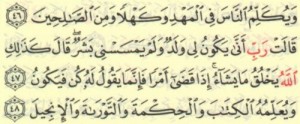 وَيُكَلِّمُ ٱلنَّاسَ فِى ٱلْمَهْدِ وَكَهْلًا وَمِنَ ٱلصَّـٰلِحِينَ
٤٦ قَالَتْ رَبِّ أَنَّىٰ يَكُونُ لِى وَلَدٌ وَلَمْ يَمْسَسْنِى بَشَرٌ ۖ قَالَ كَذَٰلِكِ
ٱللَّهُ يَخْلُقُ مَا يَشَآءُ ۚ إِذَا قَضَىٰٓ أَمْرًا فَإِنَّمَا يَقُولُ لَهُۥ كُن فَيَكُونُ ٤٧
وَيُعَلِّمُهُ ٱلْكِتَـٰبَ وَٱلْحِكْمَةَ وَٱلتَّوْرَىٰةَ وَٱلْإِنجِيلَ ٤٨